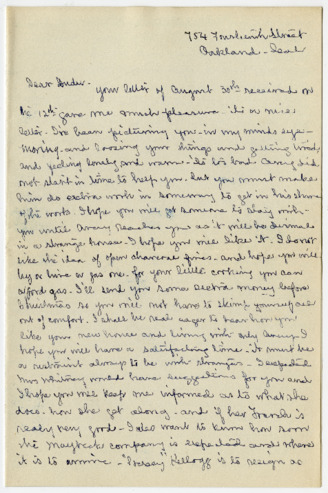 754 Fourteenth Street
Oakland - Cal
Dear Louder -
your letter of August 30th received on
the 12th gave me much pleasure. it's a nice
letter. I've been picturing you - in my minds eye -
moving - and boxing your things and getting tired,
and feeling lonely and warm. it's too bad Avery did
not start in time to help you. but you must make
him do extra work in some way to get in his share
of the work. I hope you will get someone to stay with -
you until Avery reaches you as it will be dismal
in a strange house. I hope you will like it. I do not
like the idea of open charcoal fires - and hope you will
buy or hire a gas one. for your little cooking you can
afford gas. I'll send you some extra money before
Christmas so you will not have to skimp yourself
out of comfort. I shall be real eager to hear how you
like your new house and living with only Avery. I
hope you will have a satisfactory time. it must be
a restraint always to be with strangers. I expected
Mrs Whitney would have suggestions for you and
I hope you will keep me informed as to what she
does. how she gets along - and if her French is
really very good - I also want to know how soon
the Maybeck company is expected and where
it is to arrive - Kellogg is to resign as